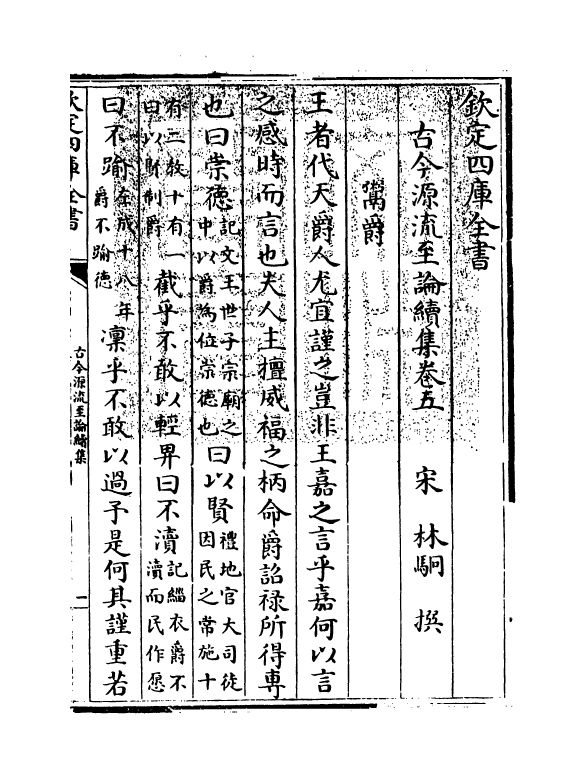 欽定四庫全書
古今源流至論續集卷五
宋 林駉 撰
鬻爵
王者代天爵人尤宜謹之豈非王嘉之言乎嘉何以言
之感時而言也夫人主擅威福之柄命爵詔禄所得專
也曰崇德記文王世子宗廟之中以爵為位崇德也曰以賢禮地官大司徒因民之常施十
有二教十有一曰以賢制爵截乎不敢以輕畀曰不瀆記緇衣爵不瀆而民作愿
曰不踰左成十八年爵不踰德凜乎不敢以過予是何其謹重若
欽定四庫全書
古今源流至論續集
二